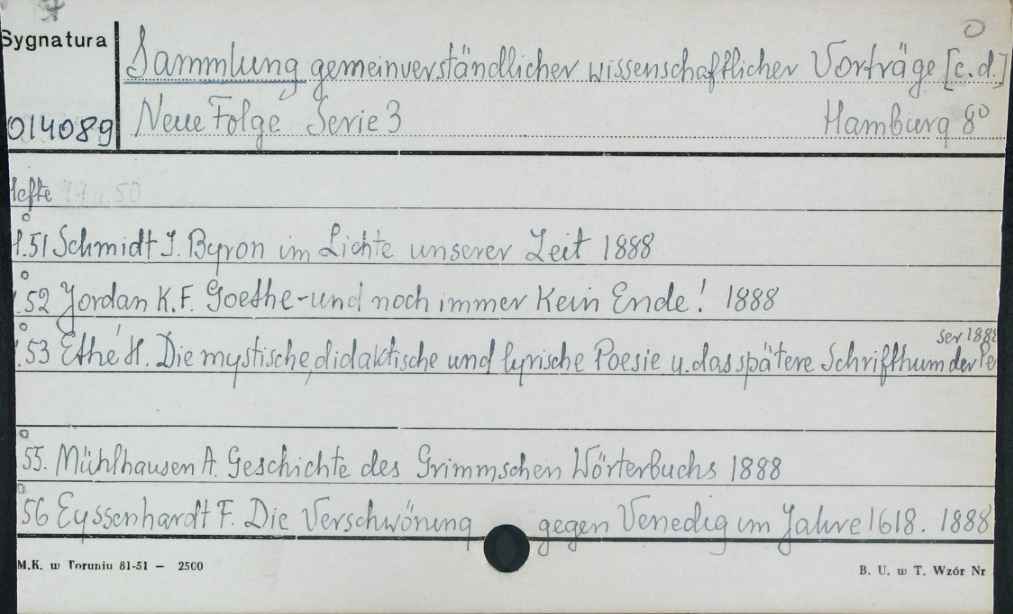 Sygnatura
014089
Sammlung gemeinverständlicher wissenschaftlicher Vorträge [c.d.]
Neue Folge Serie 3 Hamburg 8°
Hefte
51 Schmidt J. Byron im Lichte unserer Zeit 1888
52 Jordan K.F. Goethe - und noch immer kein Ende! 1888
53 Ethé H. Die mystische, didaktische und lyrische Poesie u. das spätere Schrifthum der Per
ser 1888
55. Mühlhausen A. Geschichte des Grimmschen Wörterbuchs 1888
56 Eyssenhardt F. Die Verschwönung gegen Venedig im Jahre 1618. 1888
M.K. w Toruniu 81-51 — 2500 B. U. w T. Wzór Nr